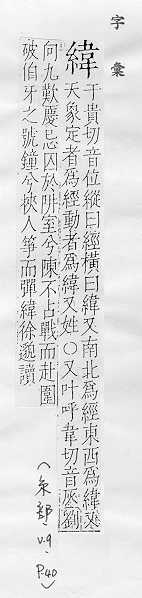 字彙
緯
于貴切音位縱曰經橫曰緯又南北爲經東西爲緯又
天象定者爲經動者爲緯又姓○又叶呼韋切音灰劉
向九歎慶忌囚於阱室兮陳不占戰而赴圍
破伯牙之號鐘兮挾人箏而彈緯徐邈讀
(糸部, v.9, P.40)